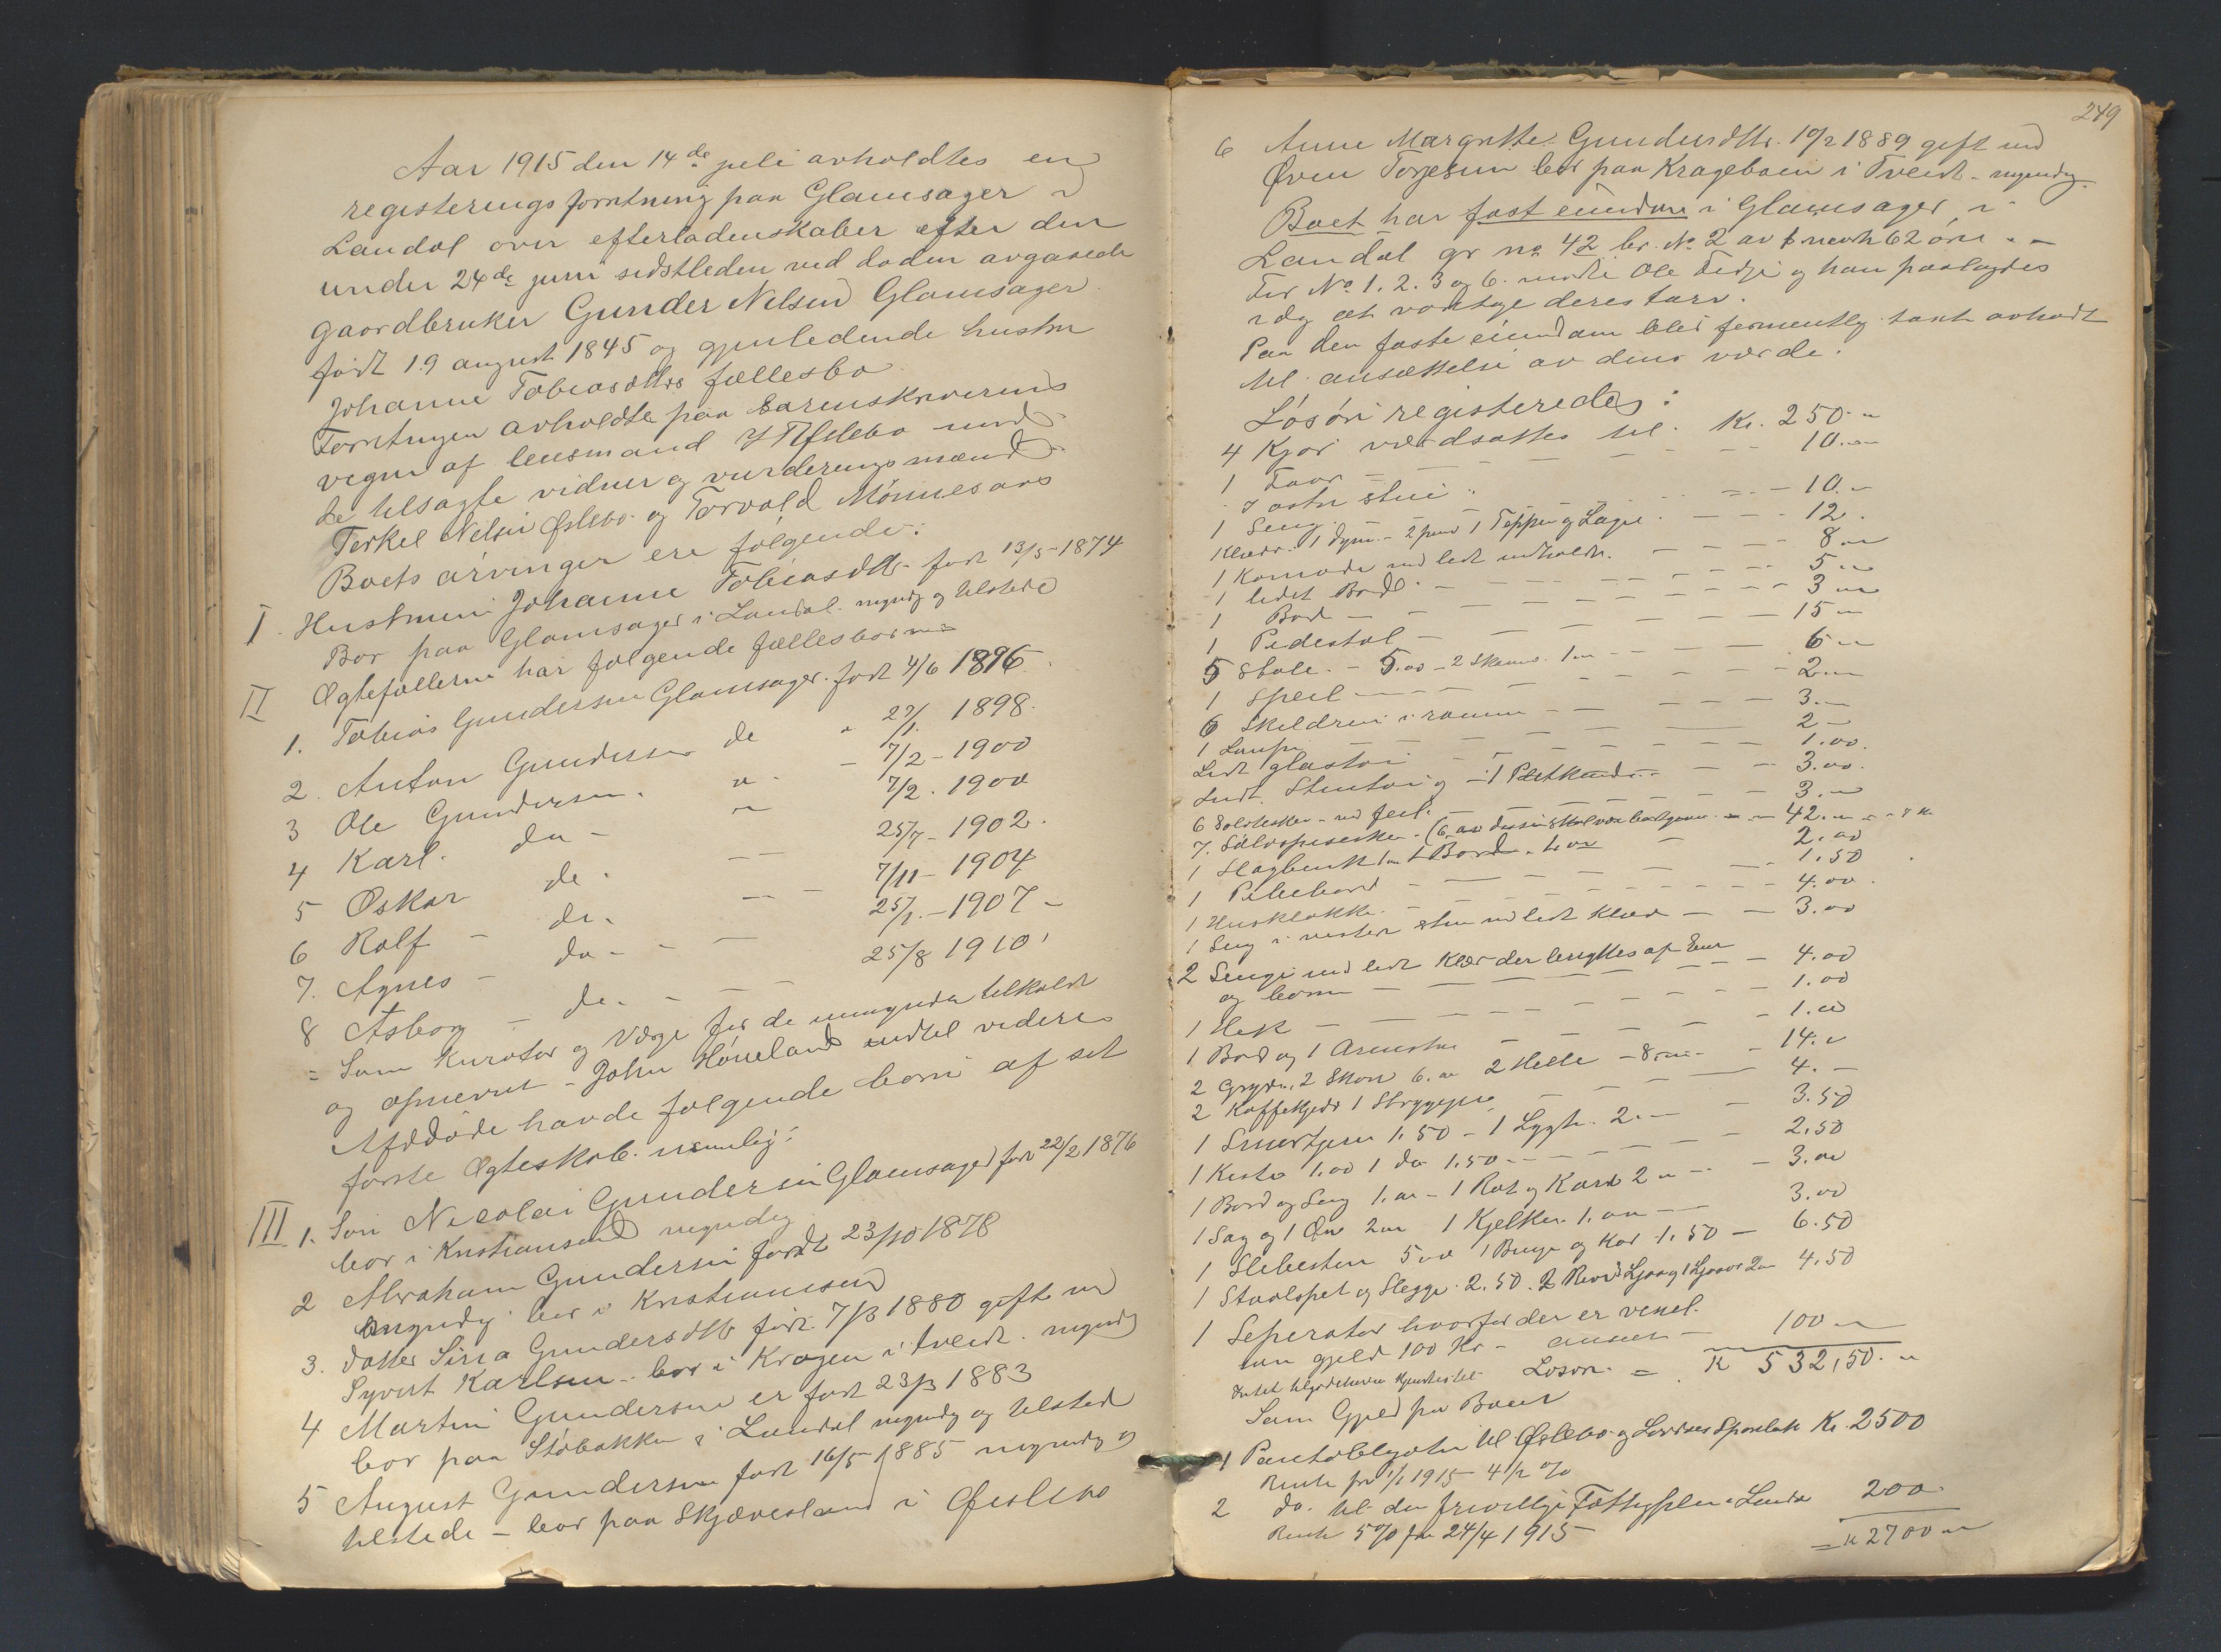 Aar 1915 den 14de juli avholdtes en
registeringsforretning paa Glamsager i
Laudal over efterladenskaber efter den
under 24de juni sidstleden ved døden avgaaede
gaardbruker Gunder Nelsen Glamsager
født 19 august 1845 og gjenlevende hustru
Johanne Tobiasdtrs fællesbo
Forretningen avholdte paa Sorenskriverens
vegne af lensmand
de tilsagte vidner og vurderingsmænd
Terkel Nelsen Øslebø og Torvald Mønnesaas
Boets arvinger ere følgende:
I. Hustruen Johanne Tobiasdtr født 13/5-1874
Bor paa Glamsager i Laudal myndig og tilstede
II Ægtefællerne har følgende fællesbørn
1. Tobias Gundersen Glamsager født 4/6 1896.
2. Anton Gundersen do " 27/1 1898.
3 Ole Gundersen. " - 7/2 - 1900
4 Karl. do - " 7/2. 1900
5 Oskar do. 25/7 - 1902.
6 Rolf - do. - - 7/11 - 1904
7. Agnes - do - - - 25/1. - 1907 -
8 Åsborg - do. - - - 25/8 1910
= Som Kurator og Værge for de umyndige tilkaldt
og opnevnt - John Høneland indtil videre
Afdøde havde følgende børn af sit
første Ægteskab. nemlig:
III 1. Søn Nicolai Gundersen Glamsager født 22/2 1876
bor i Kristiansand myndig
2 Abraham Gundersen født 23/10 1878
myndig bor i Kristiansand
3. Datter Sina Gundersdtr født 7/3 1880 gift med
Syvert Karlsen - bor i Kragen i Tveit. myndig
4 Martin Gundersen er født 23/3 1883
bor paa Støbakken i Laudal myndig og tilstede
5 August Gundersen født 16/5 1885 myndig og
tilstede - bor paa Skjævesland i Øislebø
249
6 Anne Margrethe Gundersdtr. 10/2 1889 gift med
Øven Torjesen bor paa Krageboen i Tveit - myndig.
Boet har fast eiendom i Glamsager i
Laudal gr no 42 br. No 2 av mark 62 øre. -
For No 1. 2. 3 og 6. møtte Ole og han paalagdes
idag at varetage deres tarv.
Paa den faste eiendom blev takst avholdt
til ansættelse av dens værdi.
Løsøre registeredes:
4 Kjør værdsattes til. Kr. 250 "
1 Faar - - - - 10. "
I østre stue "
1 Seng - - 10. "
Klæder: 1 dyne - 2 1 Teppe og Lagen. - - - 12.
1 Komode med lidt indhold. - - - 8 "
1 lidet Bord. - - - - 5 "
1 Bord - - - - 3 "
1 Pidestal - - - - 15 "
5 Stole. - 5.00 - 2 1 " - - 6 "
1 Speil - - - - 2. "
6 Skildrei i ramme - - - 3. "
1 Lampe - - - - 2 -
Lidt glastøi - - - - 1.00.
Lidt Stentøi og - 1 - - 3.00.
6 - ved feil. - - - 3. "
7. Sølvspiseskeer. - - 42. "
1 Slagbenk 1 " 1 Bord. 1.00 - 2.00
1 - - - - 1.50
1 Husklokke. - - - - 4.00
1 Seng i vestre stue med lidt klæder - - 3.00
2 Senge med lidt Klær der benyttes af Enken
og børn - - - - 4.00
1 Hek - - - - 1.00
1 Bord og 1 Armstol - - - 1.00
2 Gryder, 2 6. " 2 Helle - 8. " - - 14. "
2 Kaffekjeler 1 Strygejern - - - 4. -
1 Smørkjern 1.50 - 1 Lygte 2. " - - 3.50
1 Kiste 1.00 1 do 1.50 - - - - 2.50
1 Bord og Seng 1. " - 1 Rok og Karder 2 " - - - 3.00
1 Sag og 1 Øxe 2 " 1 Kjelke. 1.00 - - 3.00
1 Slibesten 5 " 1 Binge og Kar 1.50 - 6.50
1 Staalspet og Slegge 2.50. 2 4.50
1 Seperator hvorfor der er vexel.
som gjeld 100 Kr - 100 "
Løsøre = . K 532,50. "
Som Gjeld paa Boet
1 Pantobligation til Øslebø og Laudals Sparebank Kr. 2500
Rente fra 1/1 1915 4 1/2 %
2 do. til den frivillige Fattigpleie i Laudal 200.
Rente 5% fra 24/4 1915 = K 2700 "